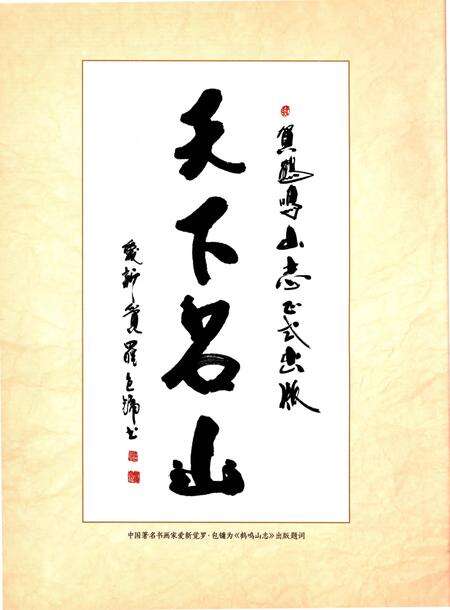 贺鹤鸣山志正式出版
天下名山
爱新觉罗包镛书
中国著名书画家爱新觉罗·包镛为《鹤鸣山志》出版题词